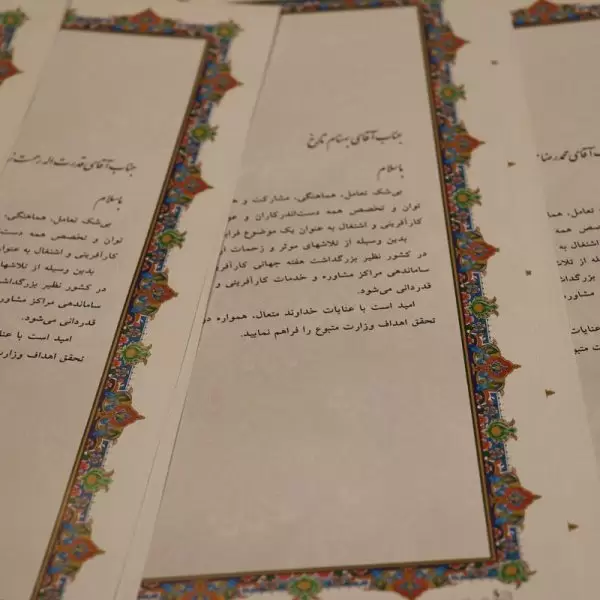 جناب آقای قدرت اله رحمت
باسلام
بی‌شک تعامل، هماهنگی،
توان و تخصص همه دست
کارآفرینی و اشتغال به عنوان
بدین وسیله از تلاشهای
در کشور نظیر بزرگداشت
ساماندهی مراکز مشاوره
قدردانی می‌شود.
امید است با عنا
تحقق اهداف وزارت
جناب آقای بهنام تارخ
باسلام
بی‌شک تعامل، هماهنگی، مشارکت و
توان و تخصص همه دست‌اندرکاران و
کارآفرینی و اشتغال به عنوان یک موضوع
بدین وسیله از تلاشهای موثر و زحمات
در کشور نظیر بزرگداشت هفته جهانی کارآفر
ساماندهی مراکز مشاوره و خدمات کارآفرینی و
قدردانی می‌شود.
امید است با عنایات خداوند متعال، همواره در
تحقق اهداف وزارت متبوع را فراهم نمایید.
آقای محمدرضا
تعامل، هما
تخصص همه
اشتغال به
از تلا
بزرگداشت
مشاوره
با عنایات
وزارت